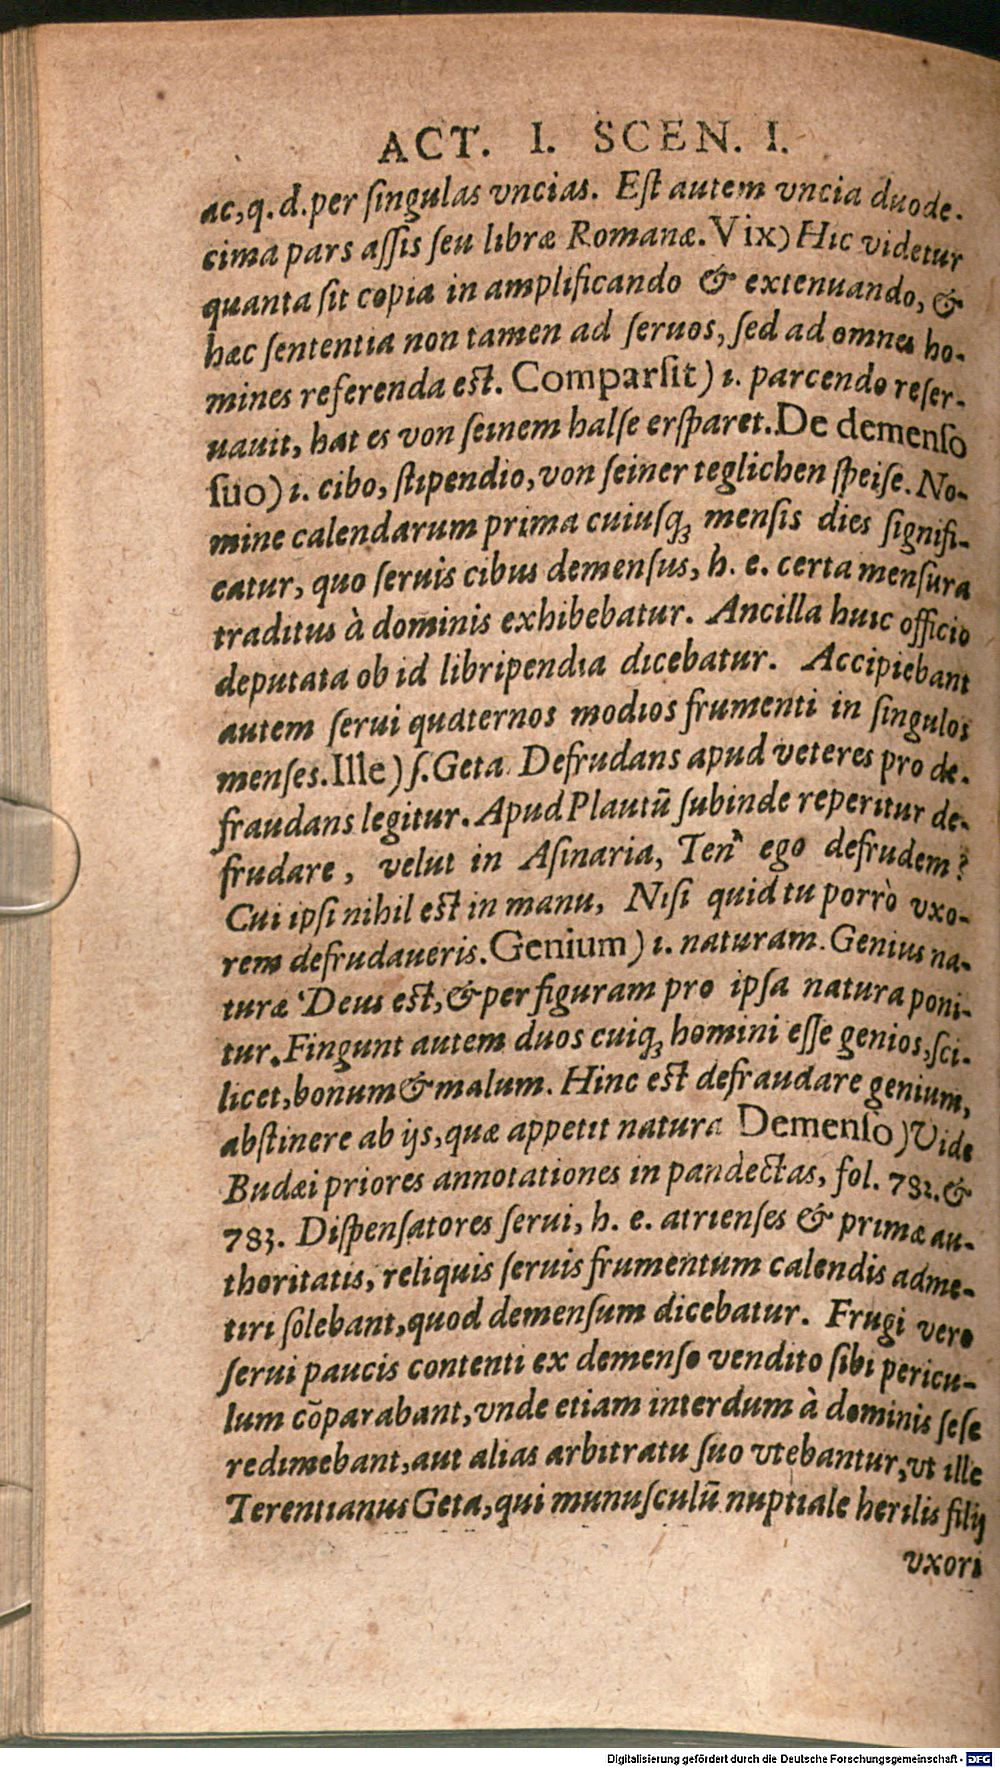 ACT. I. SCEN. I.
ac, q. d. per ſingulas vncias. Eſt autem vncia duode-
cima pars aſſis ſeu libræ Romanæ. Vix) Hic videtur
quanta ſit copia in amplificando & extenuando, &
hæc ſententia non tamen ad ſeruos, ſed ad omnes ho-
mines referenda eſt. Comparſit) i. parcendo reſer-
uauit, hat es von ſeinem halſe erſparet. De demenſo
ſuo) i. cibo, ſtipendio, von ſeiner teglichen ſpeiſe. No-
mine calendarum prima cuiuſq; menſis dies ſignifi-
catur, quo ſeruis cibus demenſus, h. e. certa menſura
traditus à dominis exhibebatur. Ancilla huic officio
deputata ob id libripendia dicebatur. Accipiebant
autem ſerui quaternos modios frumenti in ſingulos
menſes. Ille) ſ. Geta. Defrudans apud veteres pro de-
fraudans legitur. Apud Plautū ſubinde reperitur de-
frudare, velut in Aſinaria, Ten' ego defrudem?
Cui ipſi nihil eſt in manu, Niſi quid tu porrò vxo-
rem defrudaueris. Genium) i. naturam. Genius na-
turæ Deus eſt, & per figuram pro ipſa natura poni-
tur. Fingunt autem duos cuiq; homini eſſe genios, ſci-
licet, bonum & malum. Hinc eſt defraudare genium,
abſtinere ab ijs, quæ appetit natura Demenſo) Vide
Budæi priores annotationes in pandectas, fol. 782. &
783. Diſpenſatores ſerui, h. e. atrienſes & primæ au-
thoritatis, reliquis ſeruis frumentum calendis adme-
tiri ſolebant, quod demenſum dicebatur. Frugi vero
ſerui paucis contenti ex demenſo vendito ſibi pericu-
lum cōparabant, vnde etiam interdum à dominis ſeſe
redimebant, aut alias arbitratu ſuo vtebantur, vt ille
Terentianus Geta, qui munuſculū nuptiale herilis filij
vxori
Digitalisierung gefördert durch die Deutsche Forschungsgemeinschaft - DFG